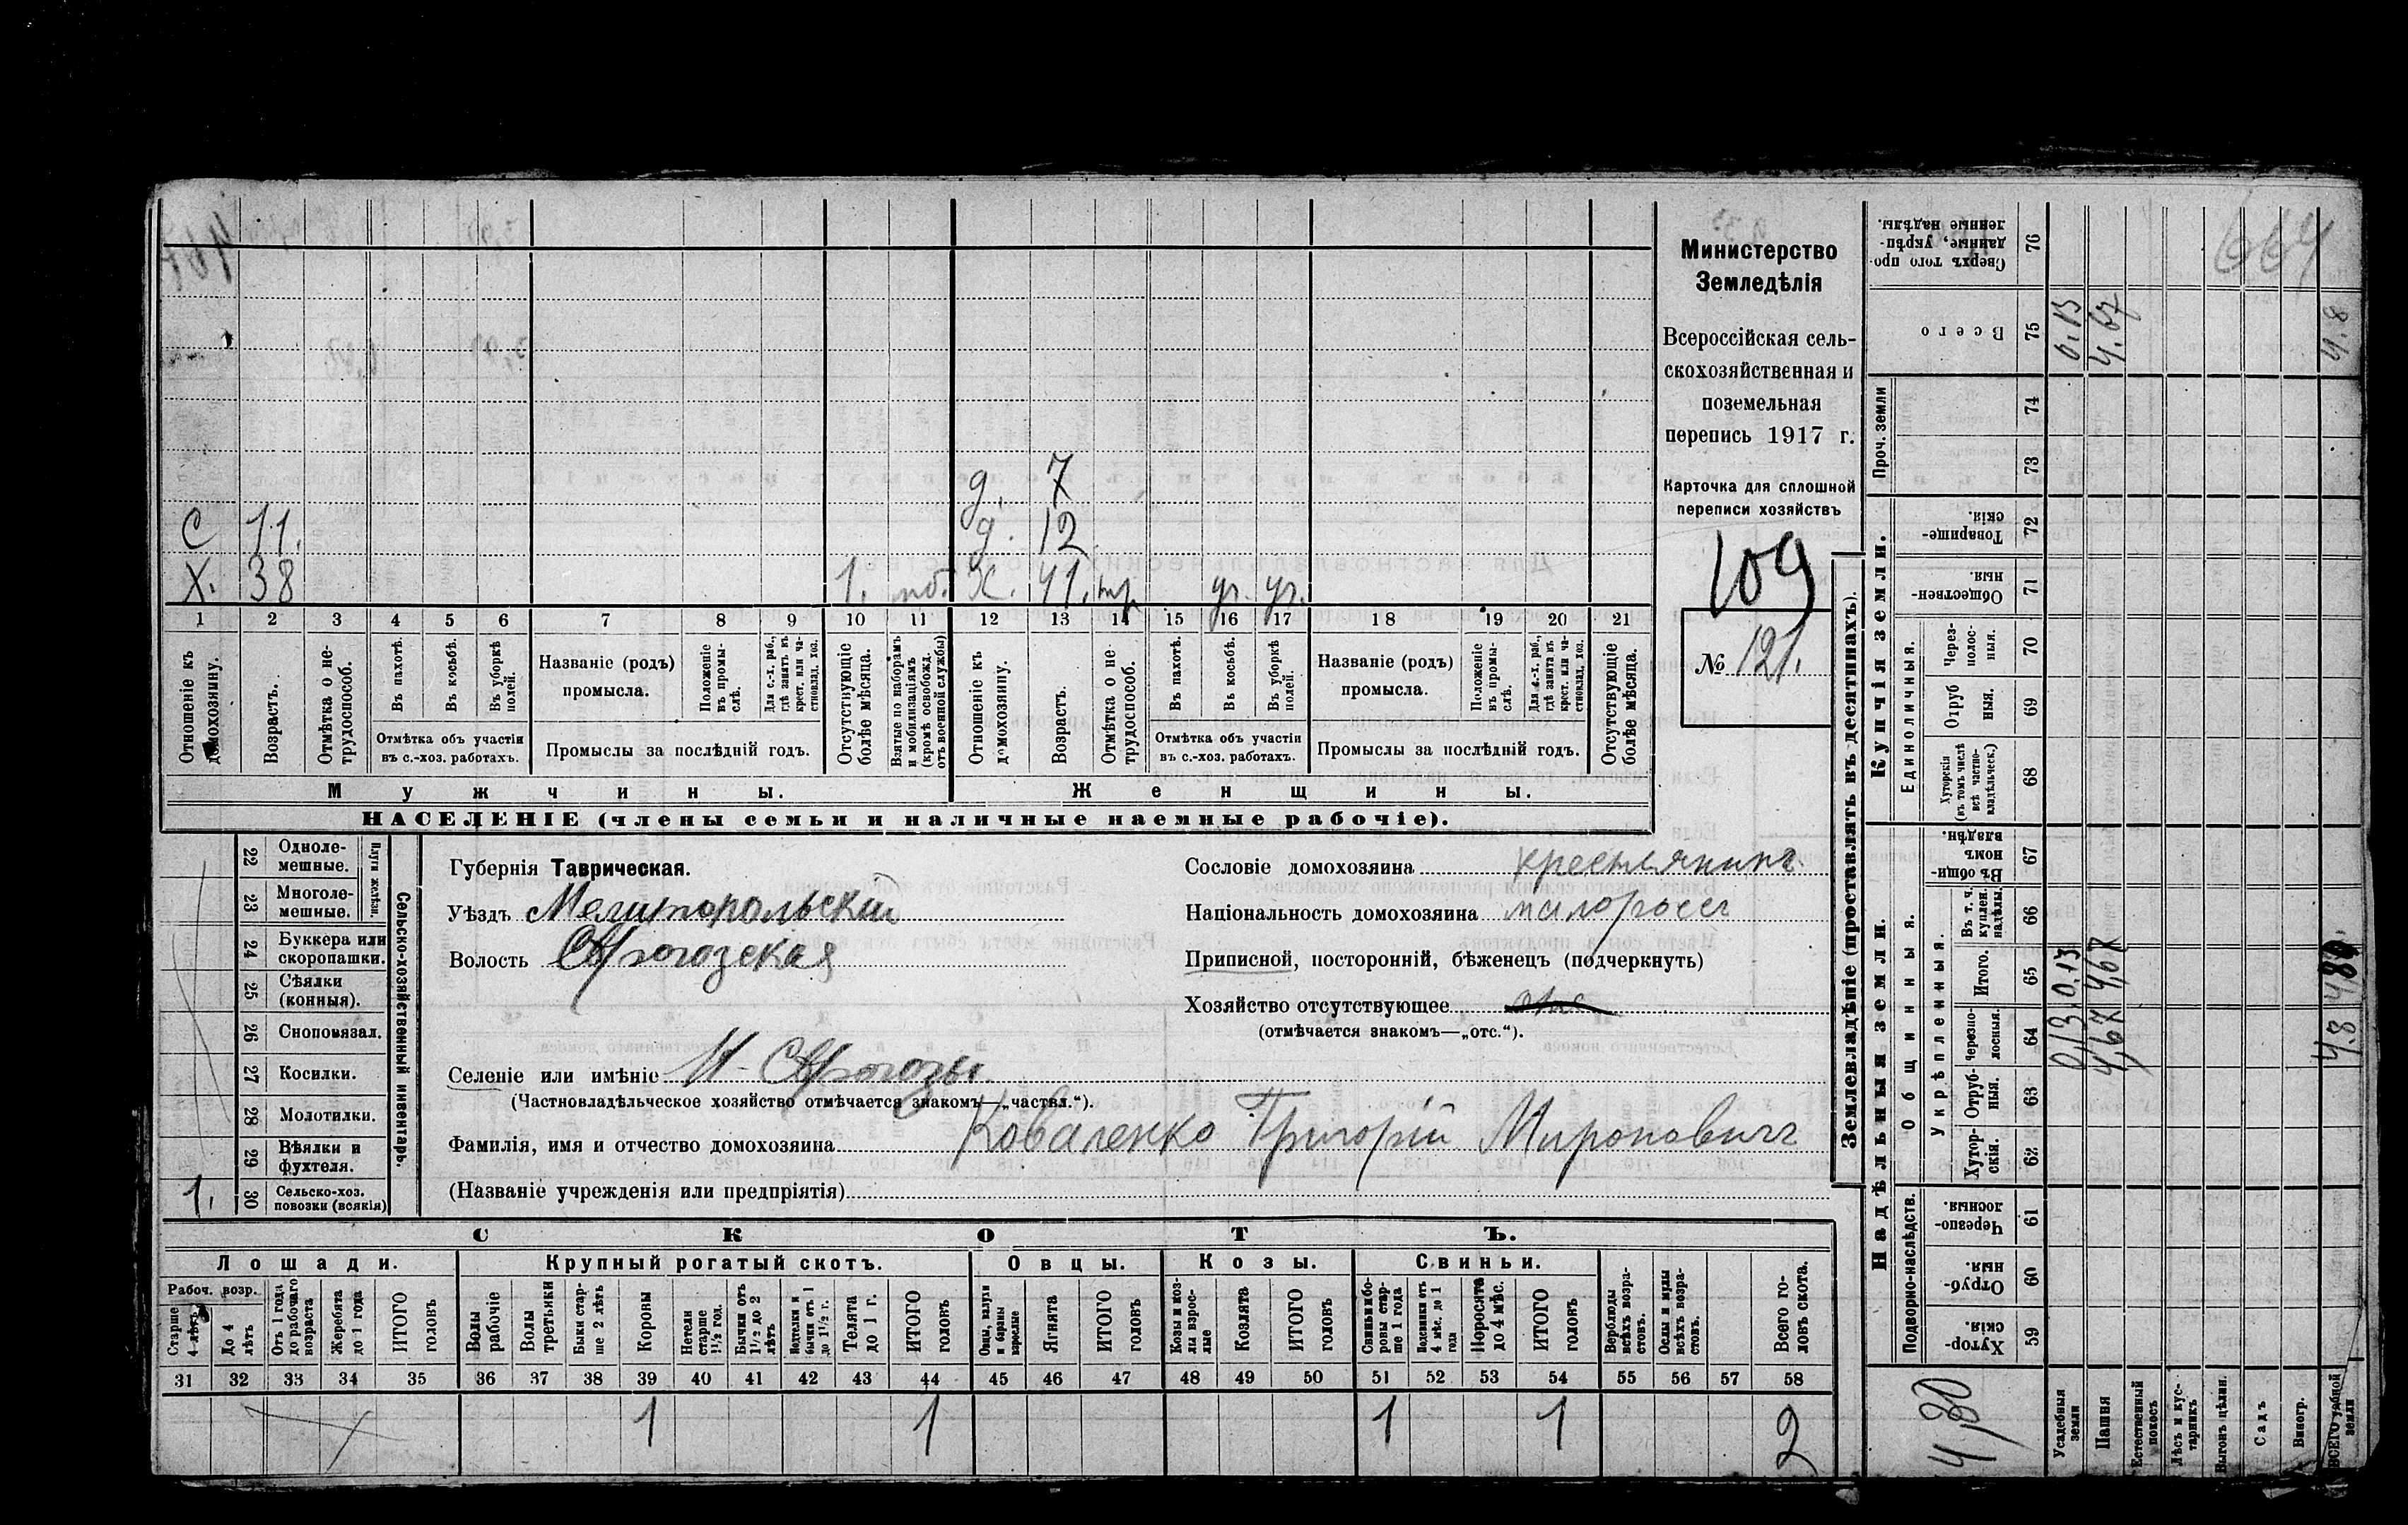 664
Министерство
Земледѣлія
Всероссійская сель-
скохозяйственная и
поземельная
перепись 1917 г.
Карточка для сплошной
переписи хозяйствъ
109
№ 121.
д. 7
С 11. д. 12
Х. 38 1. моб. Х. 41. тр. уч. уч.
1 2 3 4 5 6 7 8 9 10 11 12 13 14 15 16 17 18 19 20 21
Отношеніе къ домохозяину.
Возрастъ.
Отмѣтка о не-трудоспособ.
Въ пахотѣ.
Въ косьбѣ.
Въ уборкѣ полей.
Отмѣтка объ участіи
въ с.-хоз. работахъ.
Названіе (родъ)
промысла.
Положеніе въ промы-слѣ.
Для с.-х. раб., гдѣ занятъ въ крест. или ча-стновлад. хоз.
Промыслы за послѣдній годъ.
Отсутствующіе болѣе мѣсяца.
Взятые по наборамъ и мобилизаціямъ (кромѣ освобожд. отъ военной службы)
Отношеніе къ домохозяину.
Возрастъ.
Отмѣтка о не-трудоспособ.
Въ пахотѣ.
Въ косьбѣ.
Въ уборкѣ полей.
Отмѣтка объ участіи
въ с.-хоз. работахъ.
Названіе (родъ)
промысла.
Положеніе въ промы-слѣ.
Для с.-х. раб., гдѣ занята въ крест. или ча-стновлад. хоз.
Промыслы за послѣдній годъ.
Отсутствующіе болѣе мѣсяца.
Мужчины.
Женщины.
НАСЕЛЕНІЕ (члены семьи и наличные наемные рабочіе).
22 Однолемешные.
23 Многолемешные.
Плуги желѣзн.
24 Буккера или скоропашки.
25 Сѣялки (конныя).
26 Сноповязал.
27 Косилки.
28 Молотилки.
29 Вѣялки и фухтеля.
1. 30 Сельско-хоз. повозки (всякія)
Сельско-хозяйственный инвентарь.
Губернія Таврическая.
Уѣздъ Мелитопольскій
Волость С Рогозская
Селеніе или имѣніе Н-СРогозы
(Частновладѣльческое хозяйство отмѣчается знакомъ—„частвл.“).
Фамилія, имя и отчество домохозяина Коваленко Григорій Мироновичъ
(Названіе учрежденія или предпріятія)
Сословіе домохозяина крестьянинъ
Національность домохозяина малороссъ
Приписной, посторонній, бѣженецъ (подчеркнуть)
Хозяйство отсутствующее отс
(отмѣчается знакомъ—„отс.“).
СКОТЪ.
Лошади. Крупный рогатый скотъ. Овцы. Козы. Свиньи.
Рабоч. возр.
Старше 4 лѣтъ
До 4 лѣтъ
Отъ 1 года до рабочаго возраста
Жеребята до 1 года
ИТОГО головъ
Волы рабочіе
Волы третьяки
Быки стар-ше 2 лѣтъ
Коровы
Нетели старше 1½ год.
Бычки отъ 1½ до 2 лѣтъ
Подтелки и бычки отъ 1 до 1½ г.
Телята до 1 г.
ИТОГО головъ
Овцы, валухи и бараны взрослые
Ягнята
ИТОГО головъ
Козы и коз-лы взрос-лые
Козлята
ИТОГО головъ
Свиньи и бо-ровы стар-ше 1 года
Подсвинки отъ 4 мѣс. до 1 года
Поросята до 4 мѣс.
ИТОГО головъ
Верблюды всѣхъ возра-стовъ.
Ослы и мулы всѣхъ возра-стовъ.
Всего го-ловъ скота.
31 32 33 34 35 36 37 38 39 40 41 42 43 44 45 46 47 48 49 50 51 52 53 54 55 56 57 58
1 1 1 1 2
Землевладѣніе (проставлять въ десятинахъ).
Надѣльныя земли.
Купчія земли.
Проч. земли
Подворно-наслѣдств.
Общинныя.
Укрѣпленныя.
Единоличныя.
Хутор-скія. 59
Отруб-ныя. 60
Черезпо-лосныя. 61
Хутор-скія. 62
Отруб-ныя. 63
Черезпо-лосныя. 64
Итого. 65
Въ т. ч. куплен. надѣлы. 66
Въ общин-номъ владѣн. 67
Хуторскія (въ томъ числѣ всѣ частно-владѣльческ.) 68
Отруб ныя. 69
Через-полос-ныя. 70
Обществен-ныя. 71
Товарище-скія. 72
73
74
Всего 75
Сверхъ того про даные, укрѣп-ленные надѣлы. 76
4,80
Усадебныя земли 0,13 0,13 0.13
Пашня 4,67 4,67 4.67
Естественный покосъ
Лѣсъ и кус-тарникъ
Выгонъ цѣлин.
Садъ
Виногр.
ВСЕГО удобной земли 4.8 4.80 4.8